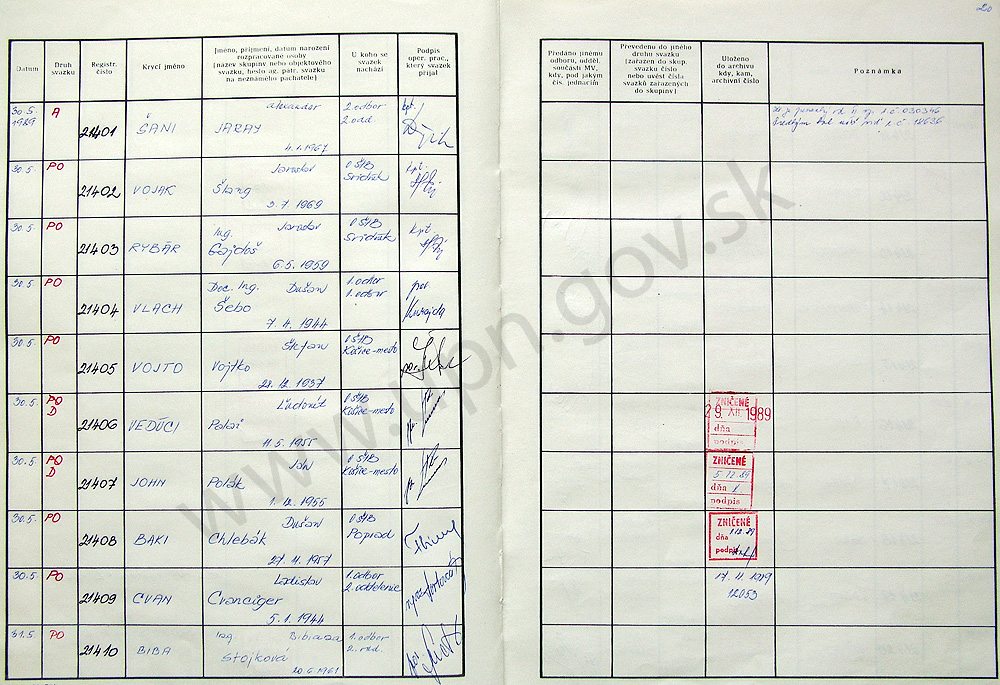 20
Datum
Druh
svazku
Registr.
číslo
Krycí jméno
Jméno, příjmení, datum narození
rozpracované osoby
(název skupiny nebo objektového
svazku, heslo ag. pátr. svazku
na neznámého pachatele)
U koho se
svazek
nachází
Podpis
oper. prac.,
který svazek
přijal
Předáno jinému
odboru, odděl.
součásti MV,
kdy, pod jakým
čís. jednacím
Převedeno do jiného
druhu svazku
(zařazen do skup.
svazku číslo
nebo uvést čísla
svazků zařazených
do skupiny)
Uloženo
do archivu
kdy, kam,
archivní číslo
Poznámka
30.5. 1989 A 21401 ŠANI Alexander
JARAY
4.1.1967
2. odbor
2. odd
30.5. PO 21402 VOJAK Jaroslav
Štang
2.7.1969
OŠTB
Svidník
kpt.
30.5. PO 21403 RYBÁR Ing. Jaroslav
Gajdoš
6.5.1959
OŠTB
Svidník
kpt.
30.5. PO 21404 VLACH Doc. Ing. Dušan
Šebo
7.4.1944
1. odbor
1. odbor
por.
30.5. PO 21405 VOJTO Štefan
Vojtko
21.12.1937
OŠTB
Košice-mesto
30.5. PO D 21406 VEDÚCI Ľudovít
11.5.1955
OŠTB
Košice-mesto
ZNIČENÉ
29. XII. 1989
dňa
podpis
30.5. PO D 21407 JOHN Ján
Polák
1.12.1955
OŠTB
Košice-mesto
ZNIČENÉ
5.12.89
dňa
podpis
30.5. PO 21408 BAKI Dušan
Chlebák
27.4.1957
OŠTB
Poprad
ZNIČENÉ
dňa
podpis
30.5. PO 21409 CVAN Ladislav
Cvanciger
5.1.1944
1. odbor
2. oddelenie
12053
31.5. PO 21410 BIBA Ing. Bibiana
Stojková
20.6.1961
1. odbor
2. odd.
www.upn.gov.sk